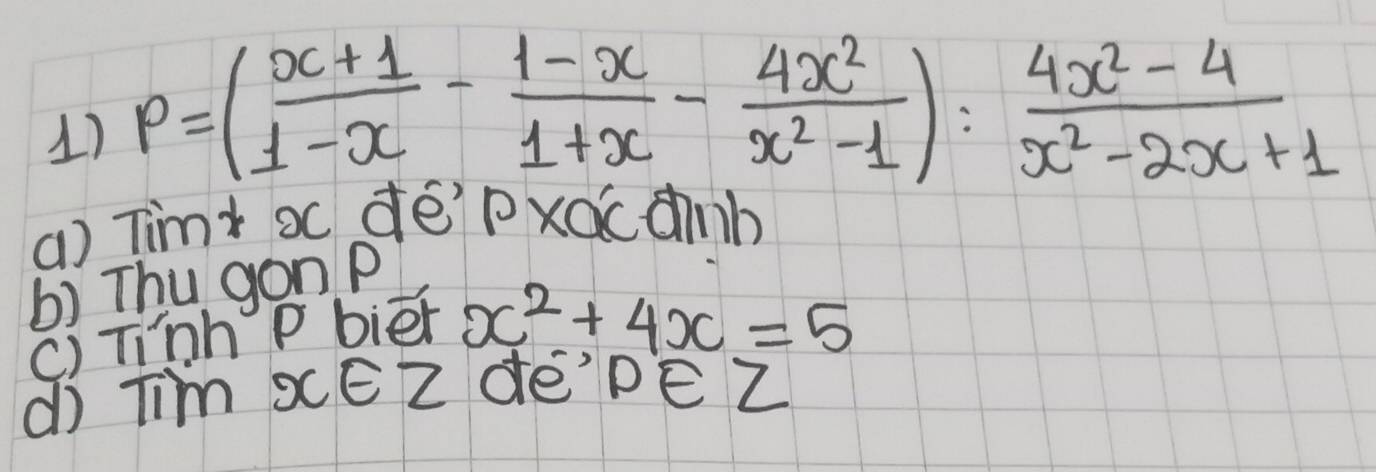 1) P = ( (x + 1)/(1 - x) - (1 - x)/(1 + x) - 4x²/(x² - 1) ) : (4x² - 4)/(x² - 2x + 1)
a) Tìm x để P xác định
b) Thu gọn P
c) Tính P biết x² + 4x = 5
d) Tìm x ∈ Z để P ∈ Z